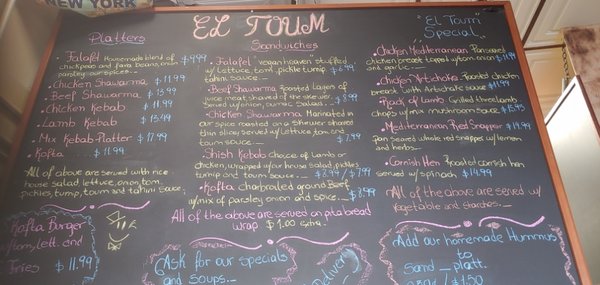 NEW YORK
EL TOUM
Platters
Falafel Homemade blend of $9.99
chickpeas and fava beans, onion
parsley our spices..
Chicken Shawarma $11.99
Beef Shawarma $13.99
Chicken Kebab $11.99
Lamb Kebab $13.99
Mix Kebab-Platter $17.99
Kafta $11.99
All of above are served with rice
house salad lettuce, onion, tom,
pickles, turnip, toum and tahini sauce
Kafta Burger
w/tom, lett. and
Fries $11.99
Sandwiches
Falafel "vegan heaven" stuffed
w/ lettuce, tom, pickle, turnip
tahini sauce $6.99
Beef Shawarma Roasted layers of
nice meat shaved off the skewer.
Served w/onion, sumac, salads. $8.99
Chicken Shawarma Marinated in
our spice roasted on a skewer, shaved
thin slices, served w/ lettuce, tom, and
toum sauce $7.99
Shish Kebab Choice of lamb or
chicken, wrapped w/our house salad, pickles
turnip and toum sauce $8.99/$7.99
Kafta charbroiled ground Beef
w/mix of parsley onion and spice $8.99
All of the above are served on pita bread
wrap $1.00 extra.
Ask for our specials
and soups..
Delivery
"El Toum
Special"
Chicken Mediterranean Panseared
chicken breast topped w/tom, onion $11.99
and garlic
Chicken Artichoke Roasted chicken
breast with Artichoke sauce $11.99
Rack of Lamb Grilled three lamb
chops w/mix mushroom sauce $15.95
Mediterranean Red Snapper $19.99
Pan seared whole red snapper w/ lemon
and herbs
Cornish Hen Roasted cornish hen
served w/spinach $14.99
All of the above are served w/
vegetable and starches..
Add our homemade Hummus
to
Sand platt.
/ $1.50